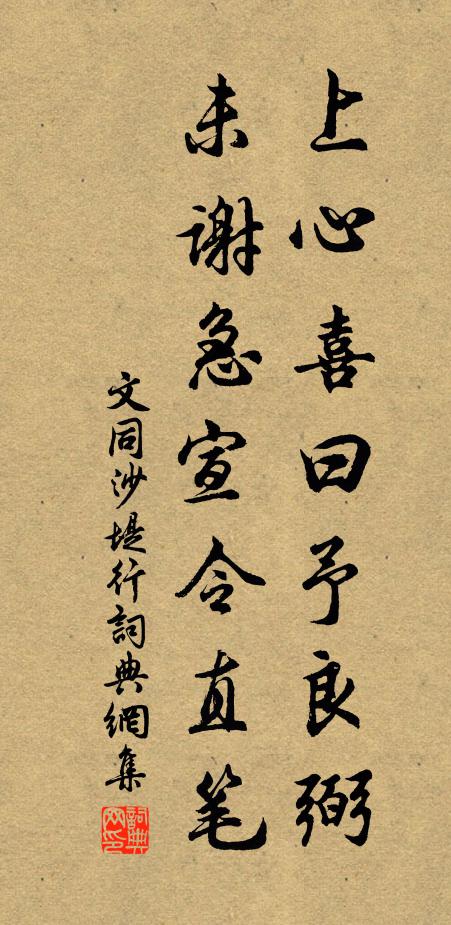 上心喜曰予良弼
未谢急宣令直笔
文同沙堤行詞典網集
詞典網印